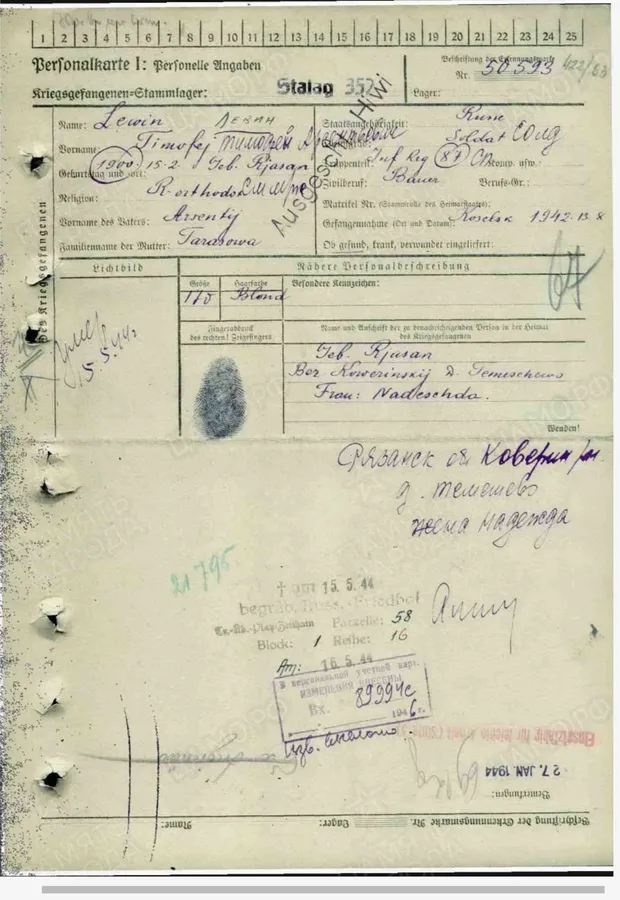 1 2 3 4 5 6 7 8 9 10 11 12 13 14 15 16 17 18 19 20 21 22 23 24 25
Personalkarte I: Personelle Angaben
Beschriftung der Erkennungsmarke
Nr. 50593
Kriegsgefangenen-Stammlager: Stalag 352
Lager:
Ausgesch. Hiwi
Des Kriegsgefangenen
Name: Lewin Левин
Staatsangehörigkeit: Russe
Vorname: Timofej Тимофей
Soldat Солд
Geburtstag und -ort: 1900. 15.2. Geb. Rjasan
Truppenteil: Inf Reg 87 СП Komp. usw.:
Religion: R-orthodox
Zivilberuf: Bauer Berufs-Gr.:
Matrikel Nr. (Stammrolle des Heimatstaates):
Vorname des Vaters: Arsentij
Gefangennahme (Ort und Datum): Koselsk 1942.13.8
Familienname der Mutter: Tarasowa
Ob gesund, krank, verwundet eingeliefert:
Lichtbild
Nähere Personalbeschreibung
Größe Haarfarbe Besondere Kennzeichen:
170 Blond
Fingerabdruck
des rechten! Zeigefingers
Name und Anschrift der zu benachrichtigenden Person in der Heimat
des Kriegsgefangenen
умер
15.5.44
Geb. Rjusan
Ber Kowerinskij D. Temeschewo
Frau: Nadeschda.
Wenden!
Рязанск об Коверин р-н.
д. Темешево
жена Надежда
21795
† am 15.5.44
begrab. Russ. Friedhof
Tr.-Üb.-Platz Zeithain Parzelle: 58
Block: 1 Reihe: 16
Am: 16.5.44
В персональной учетной карт.
ИЗМЕНЕНИЯ ВНЕСЕНЫ
Вх. 8999чс
1946 г.
27. JAN. 1944
Bemerkungen:
Beschriftung der Erkennungsmarke Nr. Lager: Name: